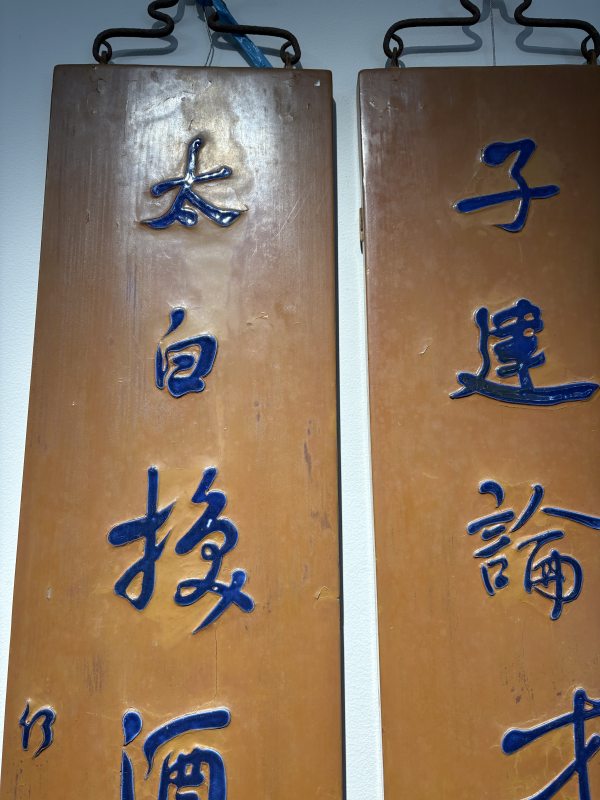 子建論才
太白換酒